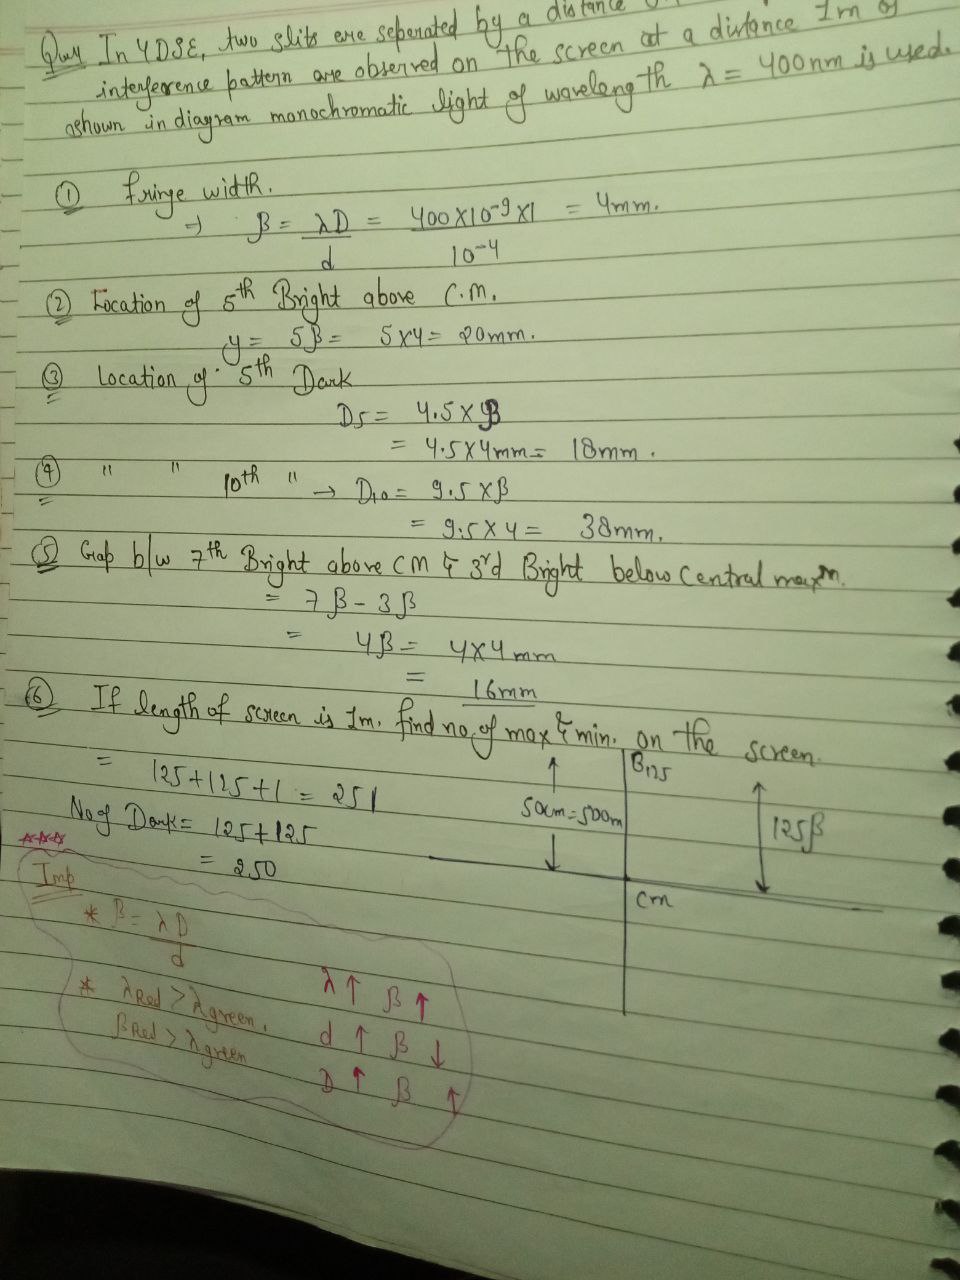 Ques In YDSE, two slits are seperated by a distance
interference pattern are observed on the screen at a distance 1m
shown in diagram monochromatic light of wavelength λ = 400nm is used.
① fringe width.
→ β = λD/d = 400×10⁻⁹×1/10⁻⁴ = 4mm.
② Location of 5th Bright above C.M.
y = 5β = 5×4 = 20mm.
③ Location of 5th Dark
D5 = 4.5×β
= 4.5×4mm = 18mm.
④ " " 10th " → D10 = 9.5×β
= 9.5×4 = 38mm.
⑤ Gap b/w 7th Bright above CM & 3rd Bright below Central maxm.
= 7β - 3β
= 4β = 4×4mm
= 16mm
⑥ If length of screen is 1m. find no. of max & min. on the screen.
= 125+125+1 = 251
No of Dark = 125+125
= 250
B125
50cm=500m
125β
CM
Imp
* β = λD/d
* λRed > λgreen.
βRed > λgreen
λ↑ β↑
d↑ β↓
D↑ β↑